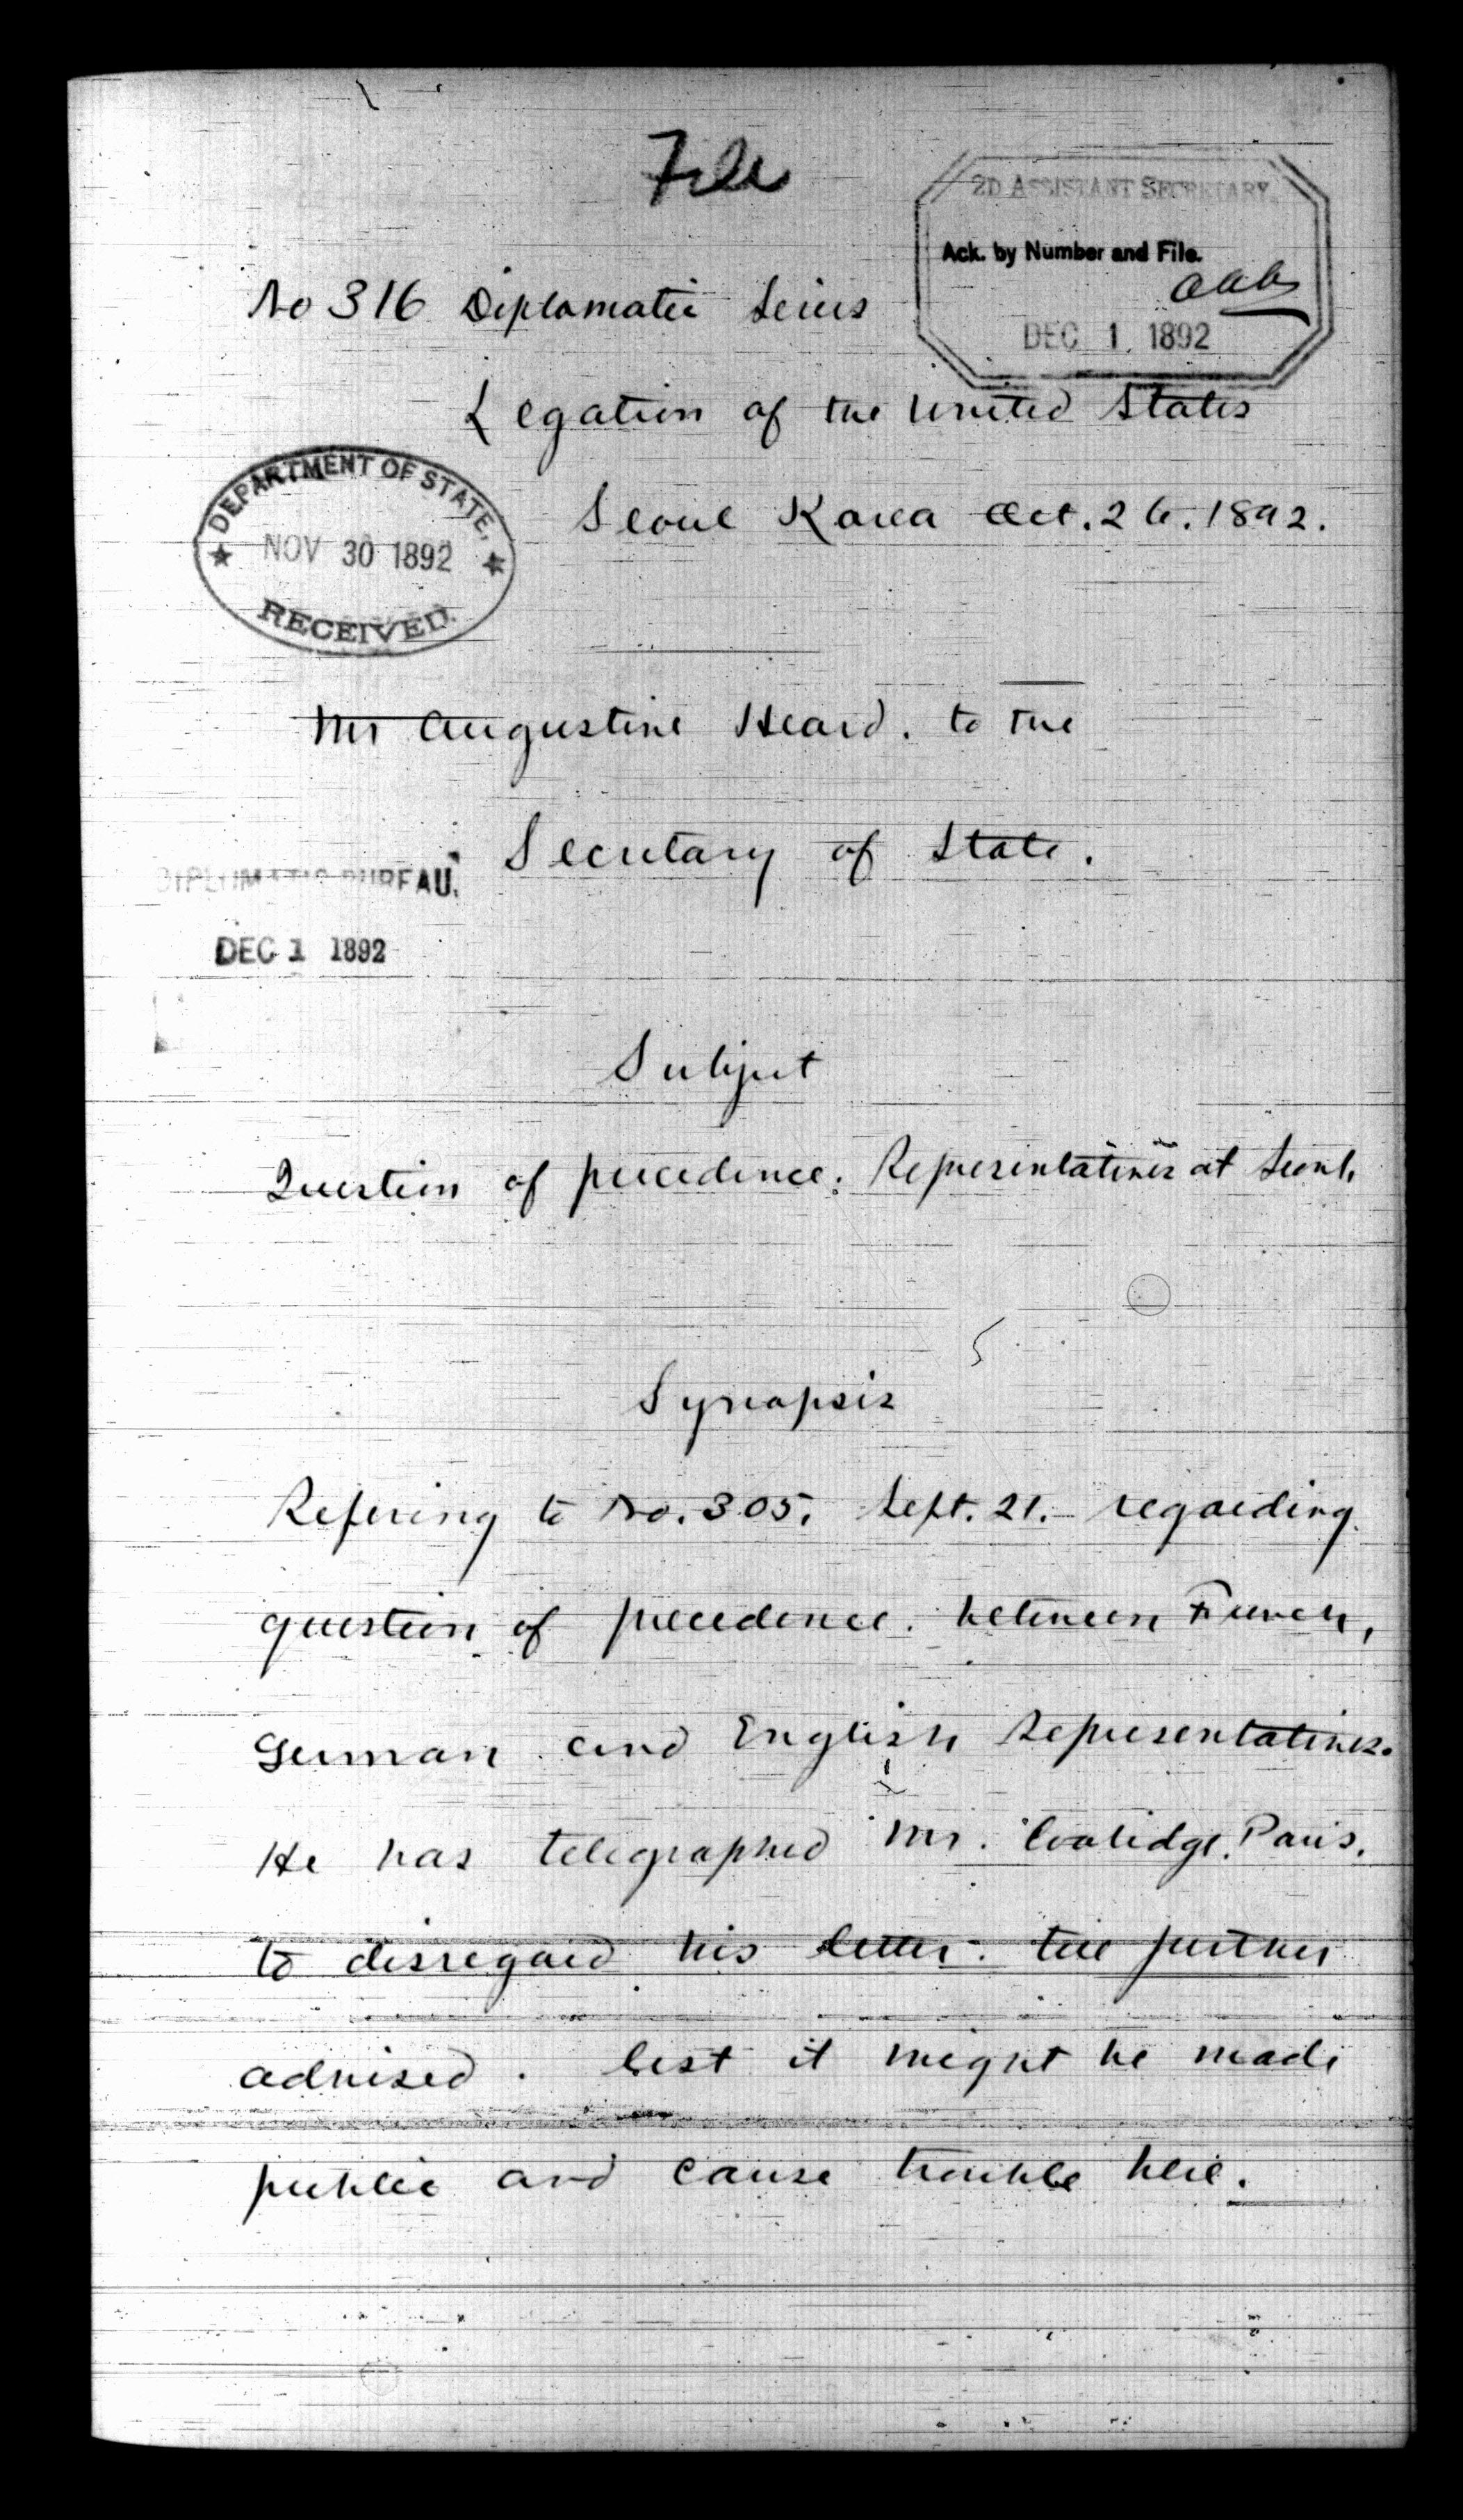 File
2D ASSISTANT SECRETARY.
Ack. by Number and File.
DEC 1 1892
No 316 Diplomatic Series
Legation of the United States
DEPARTMENT OF STATE,
NOV 30 1892
RECEIVED.
Seoul Korea Oct. 26. 1892.
Mr Augustine Heard. to the
Secretary of State.
DIPLOMATIC BUREAU.
DEC 1 1892
Subject
Question of precedence: Representatives at Seoul.
Synopsis
Refering to No. 305. Sept. 21. regarding
question of precedence. between French,
German and English Representatives.
He has telegraphed Mr. Coolidge. Paris.
to disregard his letter. till further
advised. lest it might be made
public and cause trouble here.